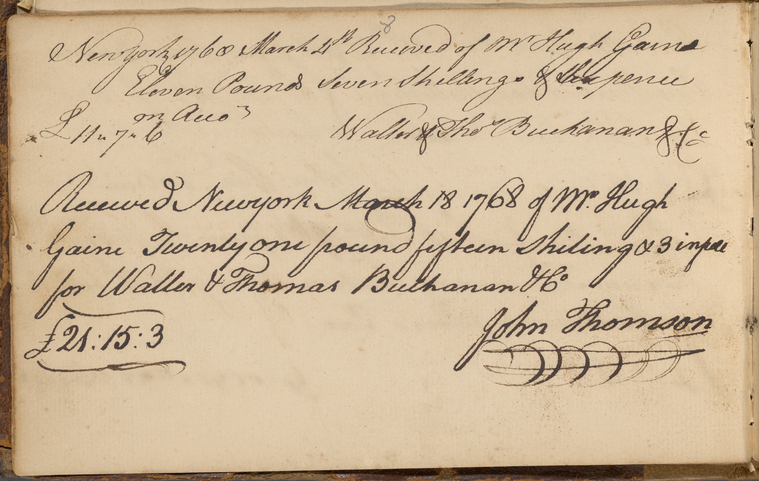 New York 1768 March 4th Received of Mr Hugh Gaine
Eleven Pounds Seven Shillings & Sixpence
on Acco
£11-7-6 Walter & Thos Buchanan & Co
Received Newyork March 18 1768 of Mr Hugh
Gaine Twenty one pound fifteen Shiling & 3 in
for Walter & Thomas Buchanan & Co
£21:15:3 John Thomson